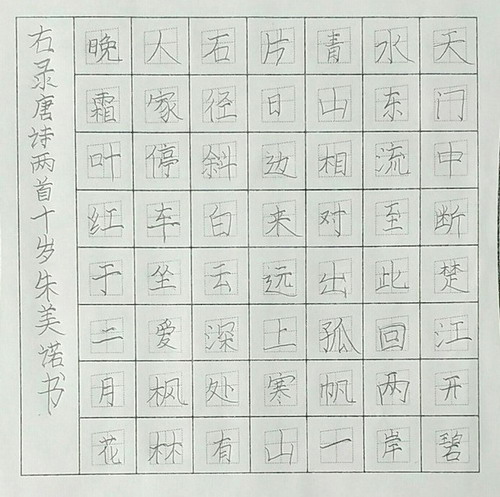 天门中断楚江开碧
水东流至此回两岸
青山相对出孤帆一
片日边来远上寒山
石径斜白云深处有
人家停车坐爱枫林
晚霜叶红于二月花
右录唐诗两首十岁朱美诺书